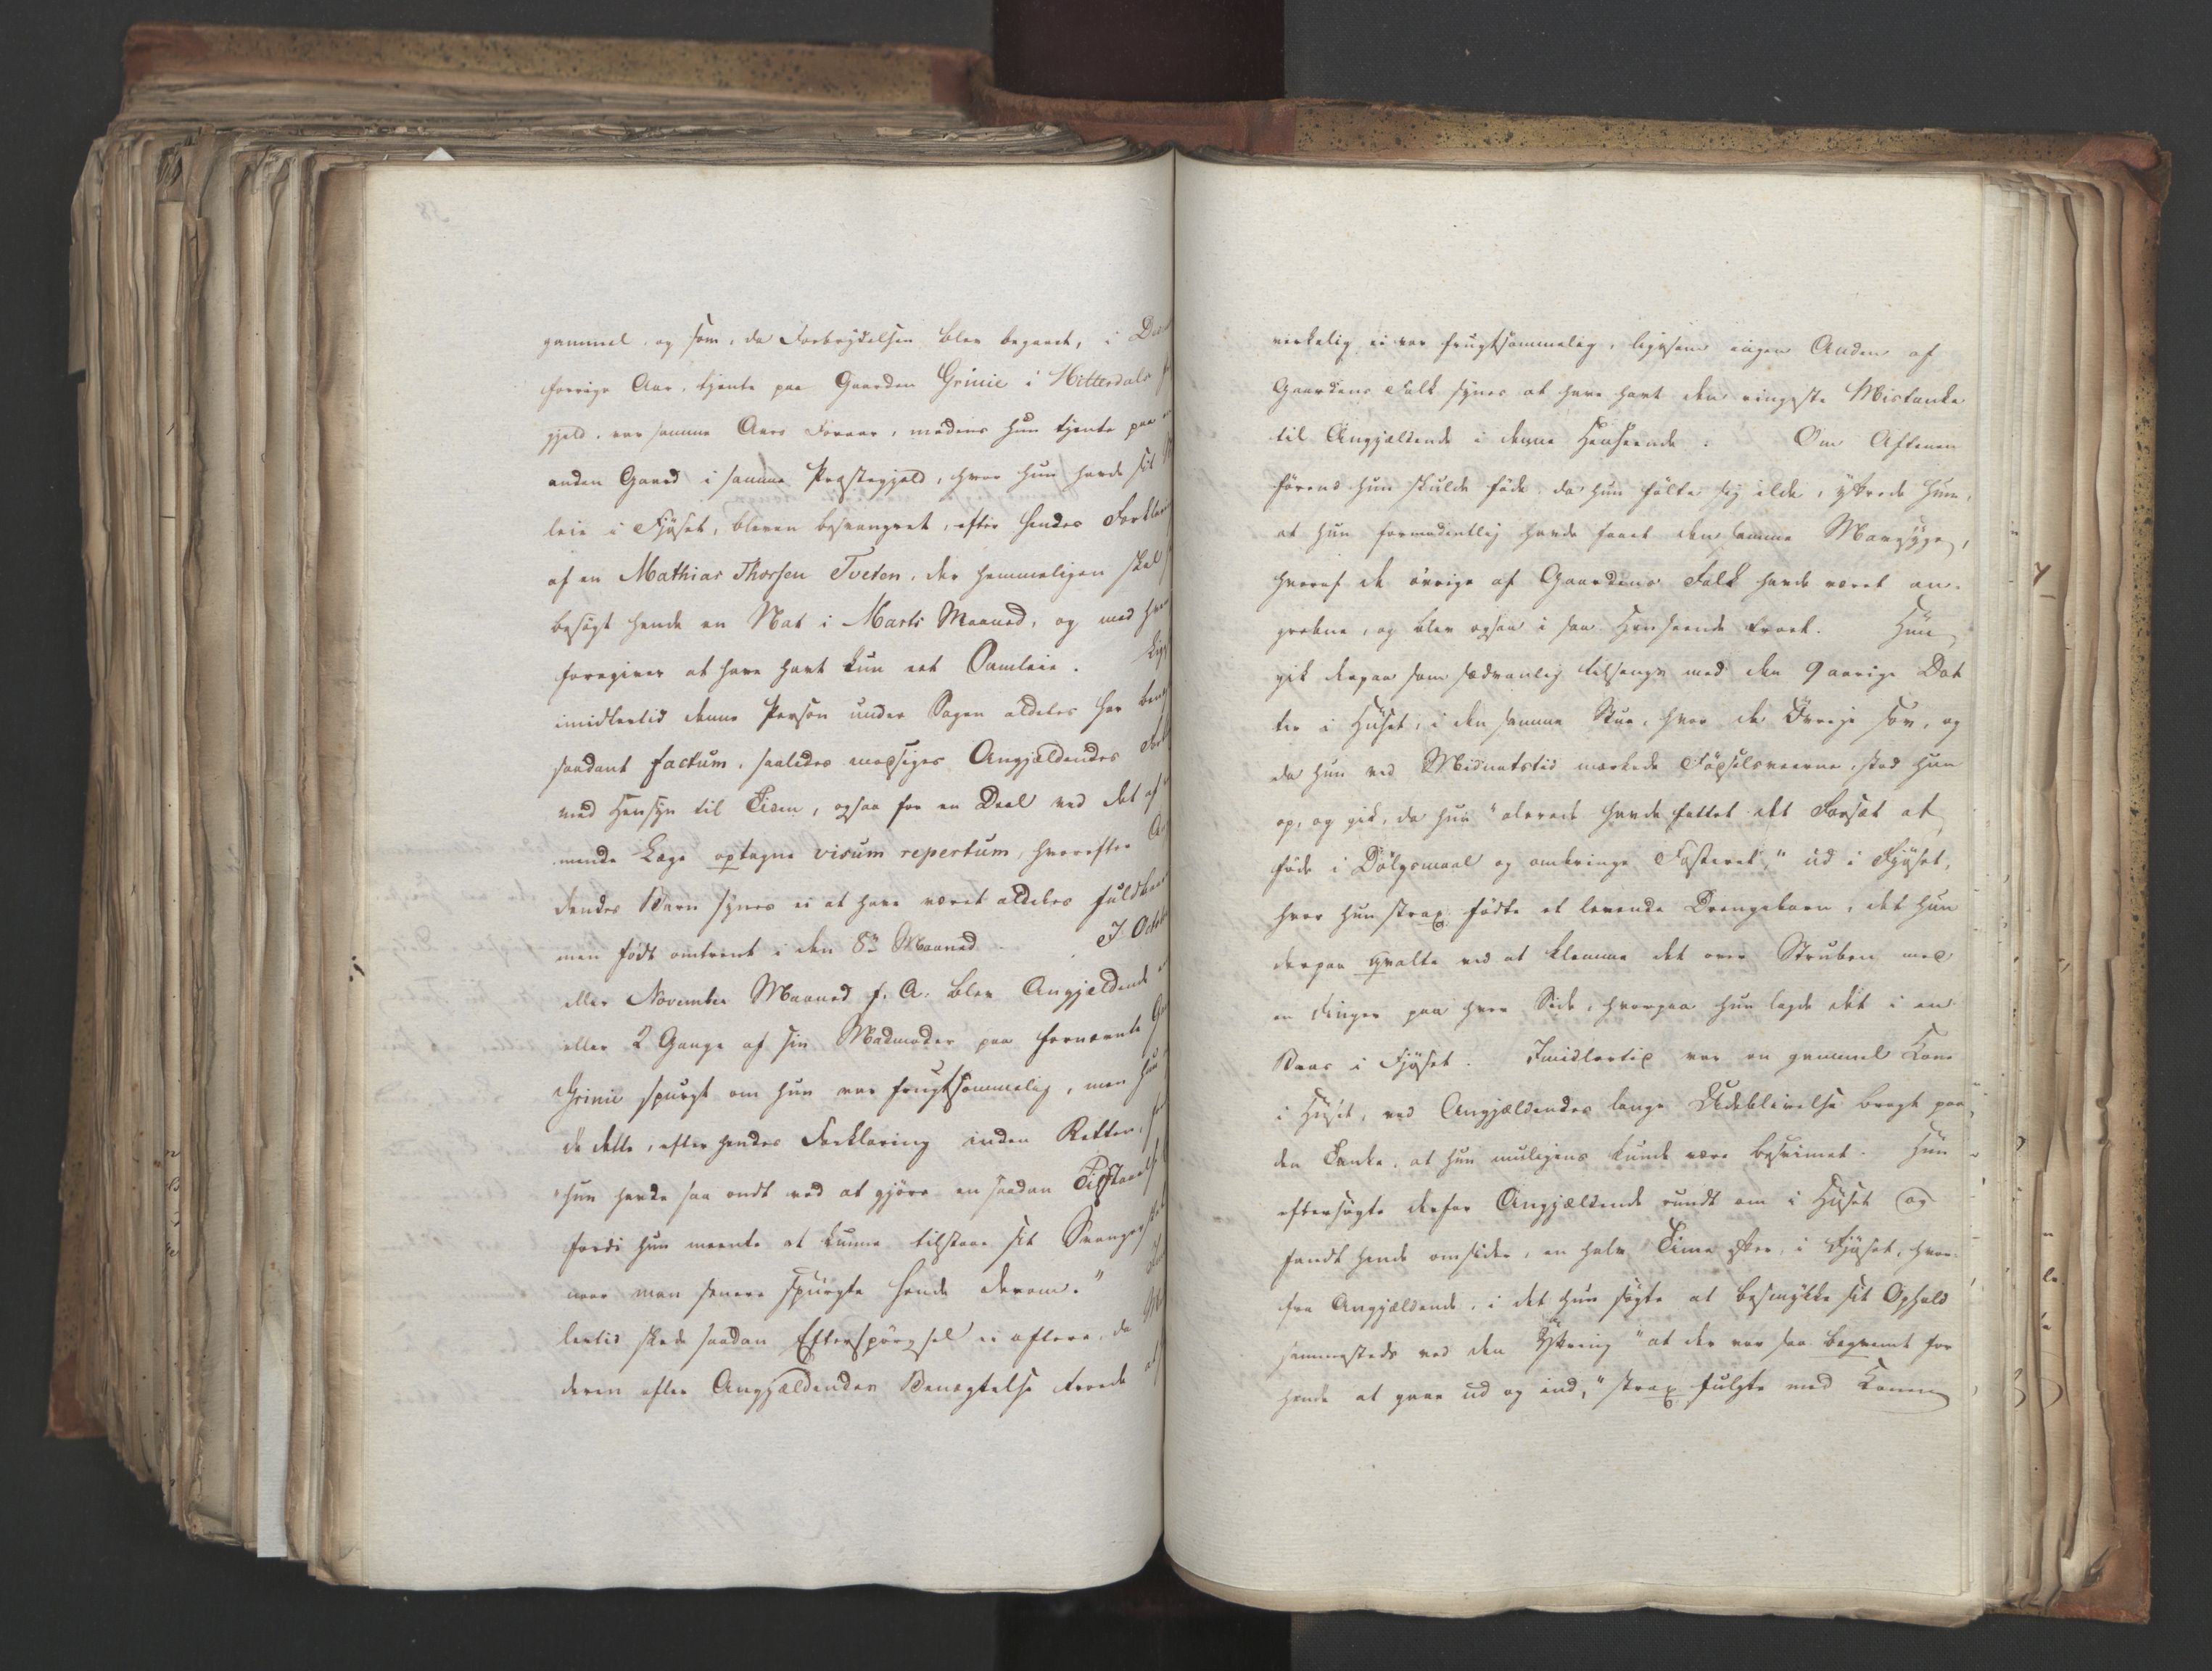 gammel, og som, da Forbrydelsen blev begaaet, i
forrige Aar, tjente paa Gaarden Grinie i Hitterdals
gjeld, var samme Aars Foraar, medens hun tjente paa
anden Gaard i samme Præstegjeld, hvor hun havde sit
leie i Fjøset, bleven besvangret, efter hendes
af en Mathias Thorsen Tveten, der hemmeligen skal
besøgt hende en Nat i Marts Maaned, og med
foregiver at have havt kun eet Samleie.
imidlertid denne Person under Sagen aldeles har
saadant factum, saaledes modsiges Angjældendes
med Hensyn til Tiden, ogsaa for en Deel ved det af
mende Læge optagne visum repertum, hvorefter
dendes Barn synes ei at have været aldeles
men født omtrent i den 8de Maaned. I
eller November Maaned f. A. blev Angjældende
eller 2 Gange af sin Madmoder paa fornævnte
Grinie spurgt om hun var frugtsommelig, men
de dette, efter hendes Forklaring inden Retten,
"hun havde saa ondt ved at gjøre en saadan
fordi hun meente at kunne tilstaae sit
naar man senere spurgte hende derom."
lertid skede saadan Efterspørgsel ei oftere, da
deren efter Angjældendes Benægtelse troede
58
virkelig ei var frugtsommelig, ligesom ingen Anden af
Gaardens Folk synes at have havt den ringeste Mistanke
til Angjældende i denne Henseende. Om Aftenen
førend hun skulde føde, da hun følte sig ilde, yttrede hun,
at hun formodentlig havde faaet den samme Mavesyge,
hvoraf de øvrige af Gaardens Folk havde været an-
grebne, og blev ogsaa i saa Henseende troet. Hun
gik derpaa som sædvanlig tilsengs med den 9 aarige Dat
ter i Huset, i den samme Stue, hvor de Øvrige sov, og
da hun ved Midnatstid mærkede Fødselsveerne, stod hun
op, og gik, da hun "allerede havde fattet det Forsæt at
føde i Dølgsmaal og ombringe Fosteret," ud i Fjøset,
hvor hun strax fødte et levende Drengebarn, det hun
derpaa qvalte ved at klemme det over Struben med
en Finger paa hver Side, hvorpaa hun lagde det i en
Baas i Fjøset. Imidlertid var en gammel Kone
i Huset, ved Angjældendes lange Udeblivelse bragt paa
den Tanke, at hun muligens kunde være besvimet. Hun
eftersøgte derfor Angjældende rundt om i Huset og
fandt hende omsider, en halv Time efter, i Fjøset, hvor-
fra Angjældende, i det hun søgte at besmykke sit Ophold
sammesteds ved den Yttring "at der var saa beqvemt for
hende at gaae ud og ind," strax fulgte med Konen